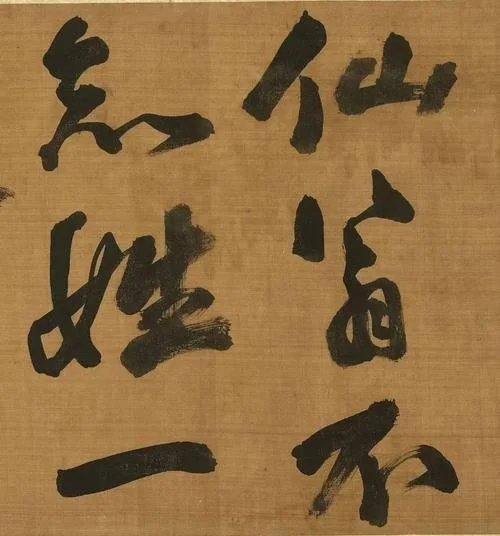 仙翁不
姓一